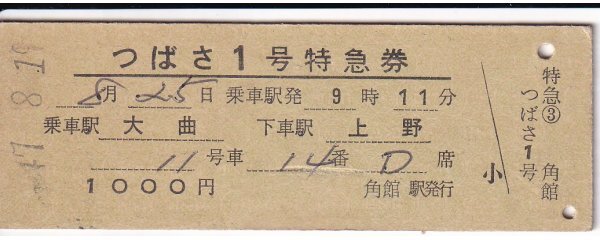 つばさ1号特急券
8月25日 乗車駅発 9時11分
乗車駅 大曲 下車駅 上野
11号車 14番 D席
1000円 角館 駅発行
小
特急③
つばさ1号 角館
47 8.19